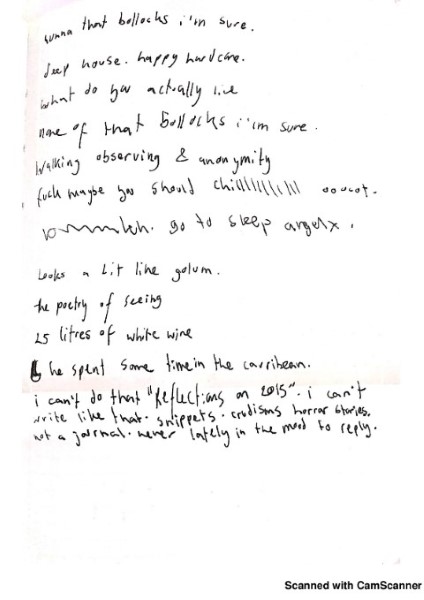 that bollocks i'm sure.
deep house. happy hardcore.
what do you actually
none of that bollocks i'm sure.
walking observing & anonymity
fuck maybe you should chillllllllll
go to sleep angelx.
Looks a bit like golum.
the poetry of seeing
25 litres of white wine
he spent some time in the carribean.
i can't do that "Reflections on 2015". i can't
write like that. snippets. crudisms horror stories.
not a journal. never lately in the mood to reply.
Scanned with CamScanner